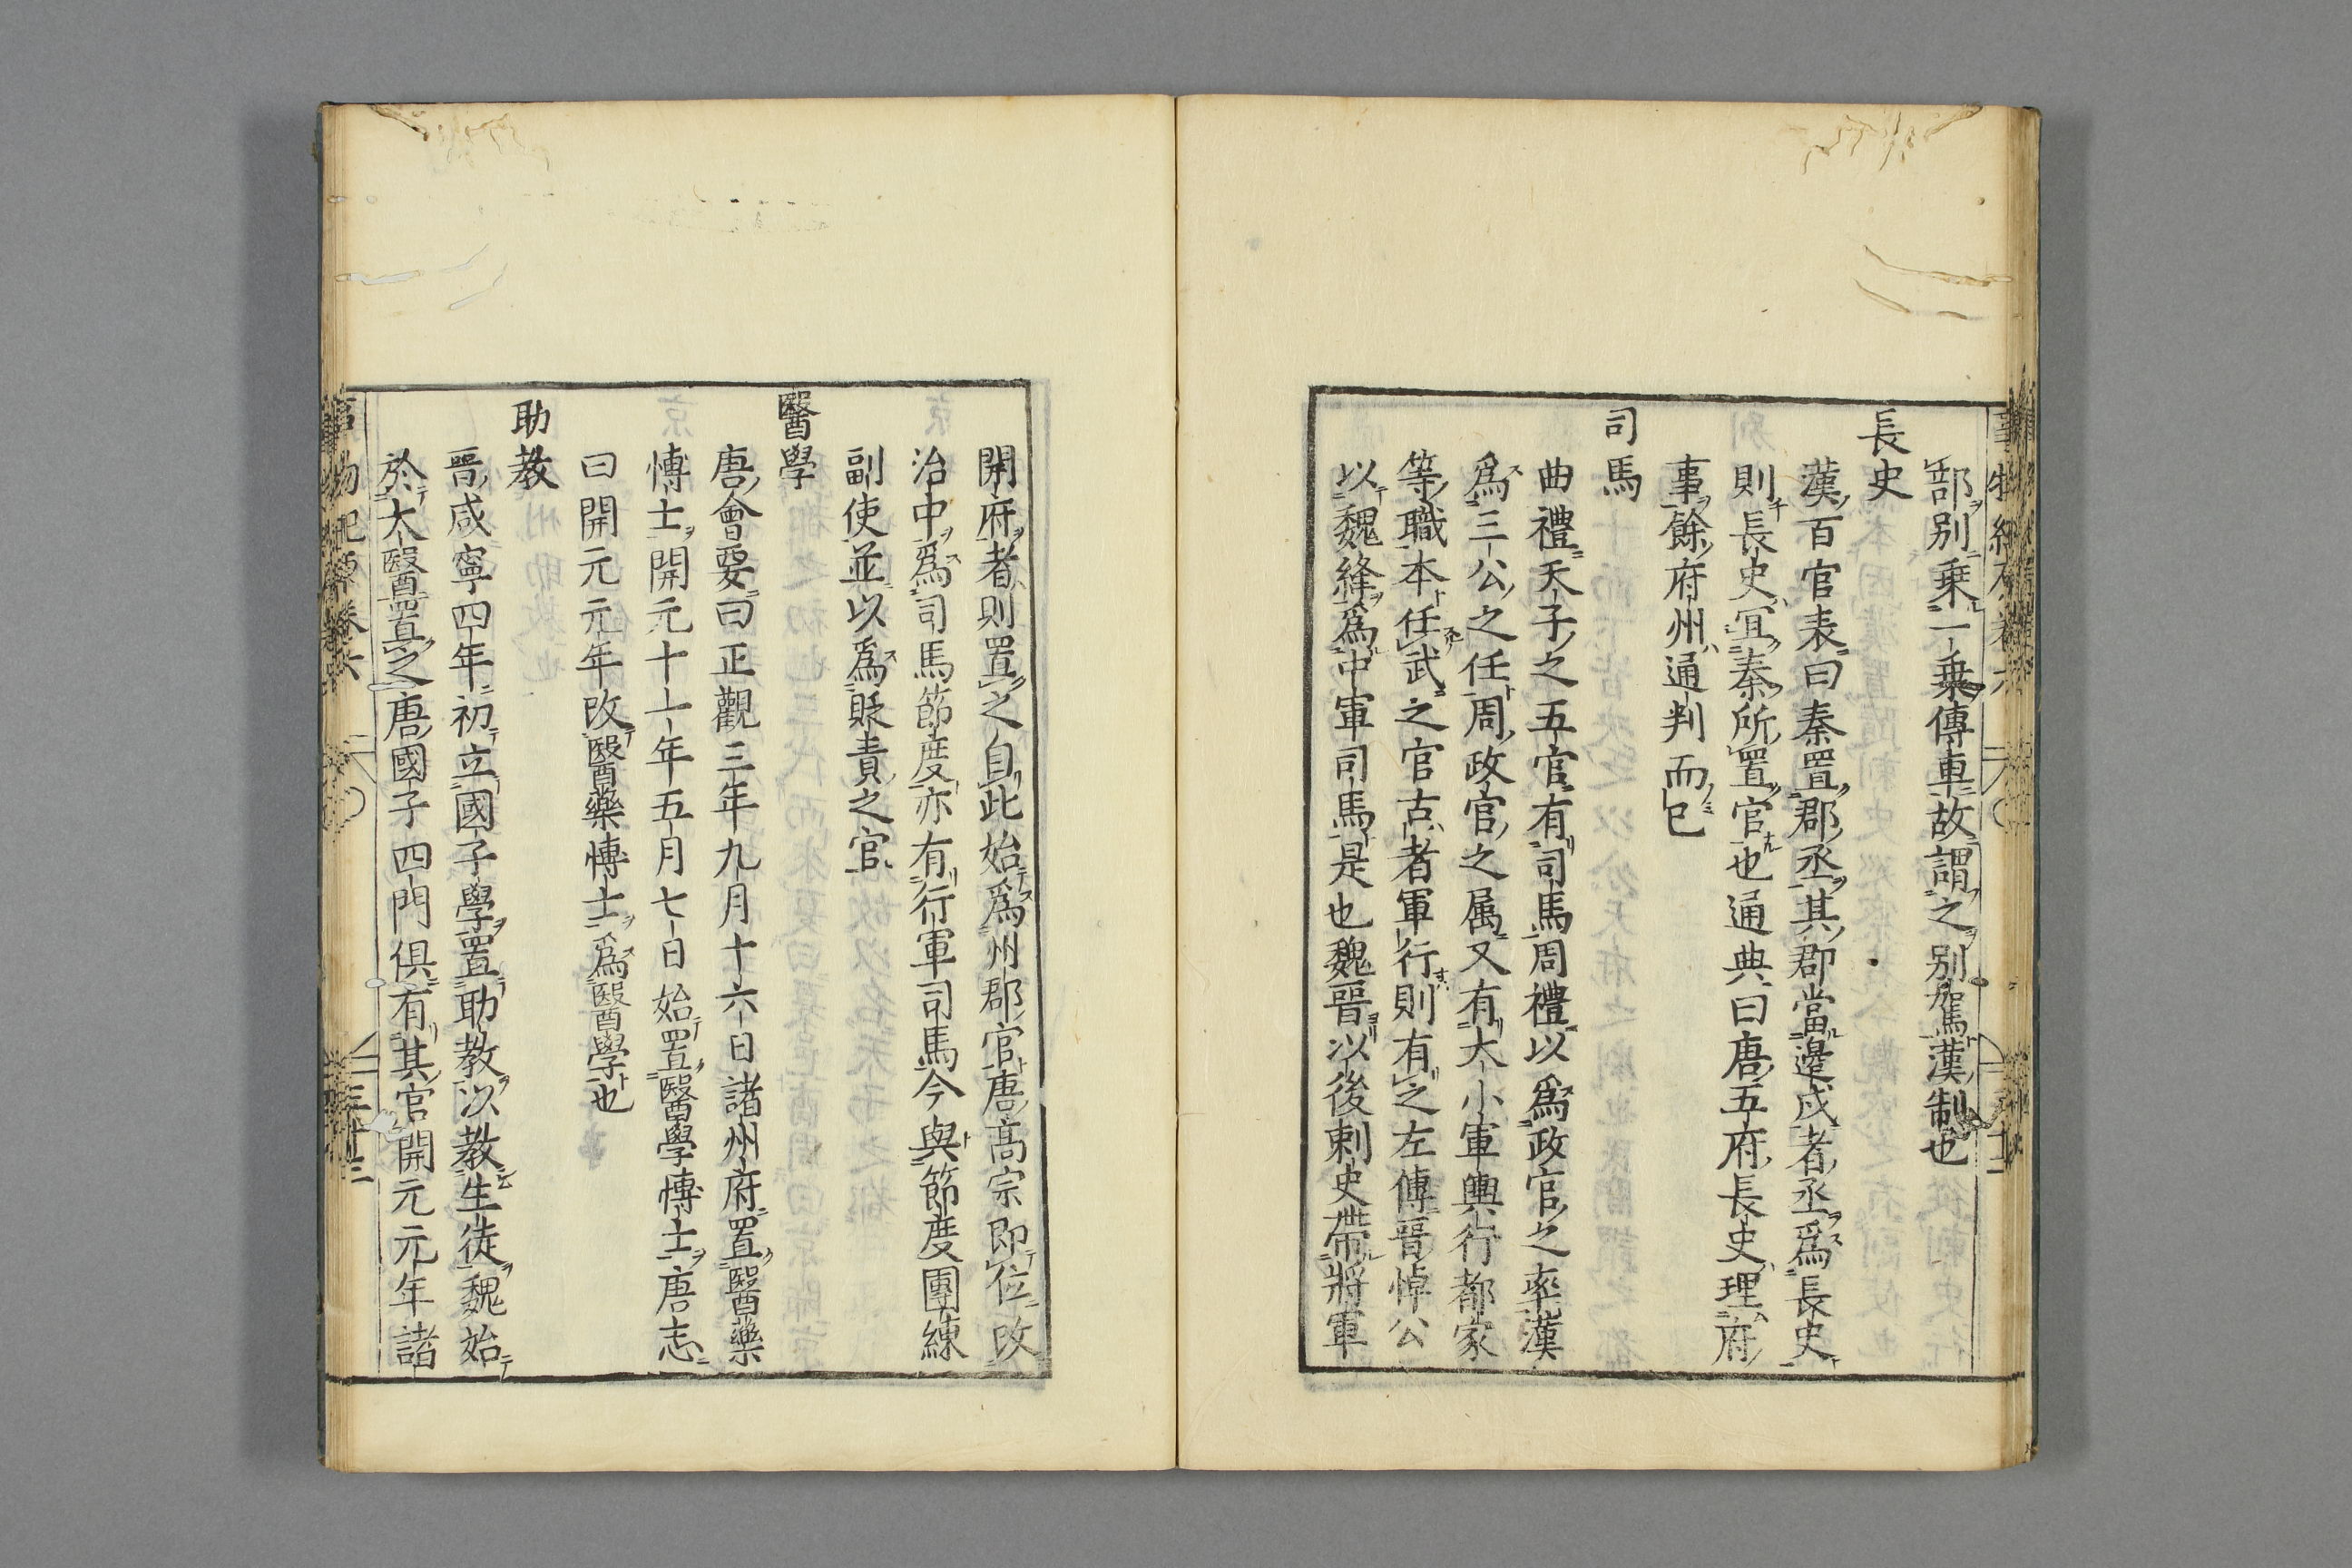 部別乗一乗傳車故謂之別駕漢制也
長史
漢百官表曰秦置郡丞其郡當邊戍者丞爲長史
則長史冝秦所置官也通典曰唐五府長史理府
事餘府州通判而已
司馬
曲禮天子之五官有司馬周禮以爲政官之率漢
爲三公之任周政官之属又有大小軍輿行都家
等職本任武之官古者軍行則有之左傳晉悼公
以魏絳爲中軍司馬是也魏晉以後刺史帶將軍
開府者則置之自此始爲州郡官唐高宗即位改
治中爲司馬節度亦有行軍司馬今與節度團練
副使並以爲貶責之官
醫學
唐會要曰正觀三年九月十六日諸州府置醫藥
愽士開元十一年五月七日始置醫學愽士唐志
曰開元元年改醫藥愽士爲醫學也
助教
晋咸寧四年初立國子學置助教以教生徒魏始
於太醫置之唐國子四門俱有其官開元元年諸
事物紀原卷六
三十三